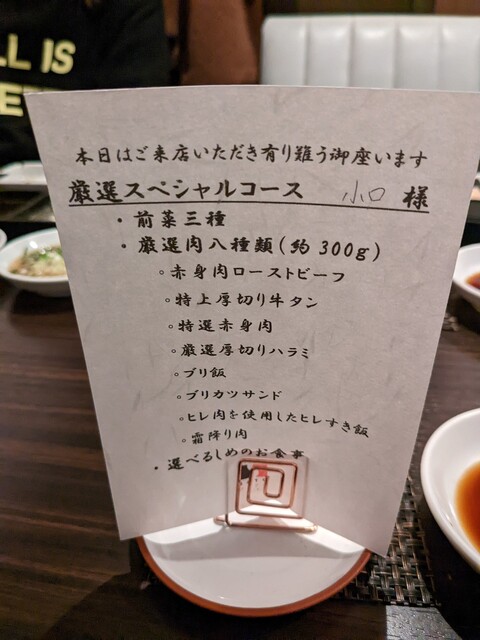 LL IS
本日はご来店いただき有り難う御座います
厳選スペシャルコース 小口 様
・前菜三種
・厳選肉八種類(約300g)
◦赤身肉ローストビーフ
◦特上厚切り牛タン
◦特選赤身肉
◦厳選厚切りハラミ
◦ブリ飯
◦ブリカツサンド
◦ヒレ肉を使用したヒレすき飯
◦霜降り肉
・選べるしめのお食事